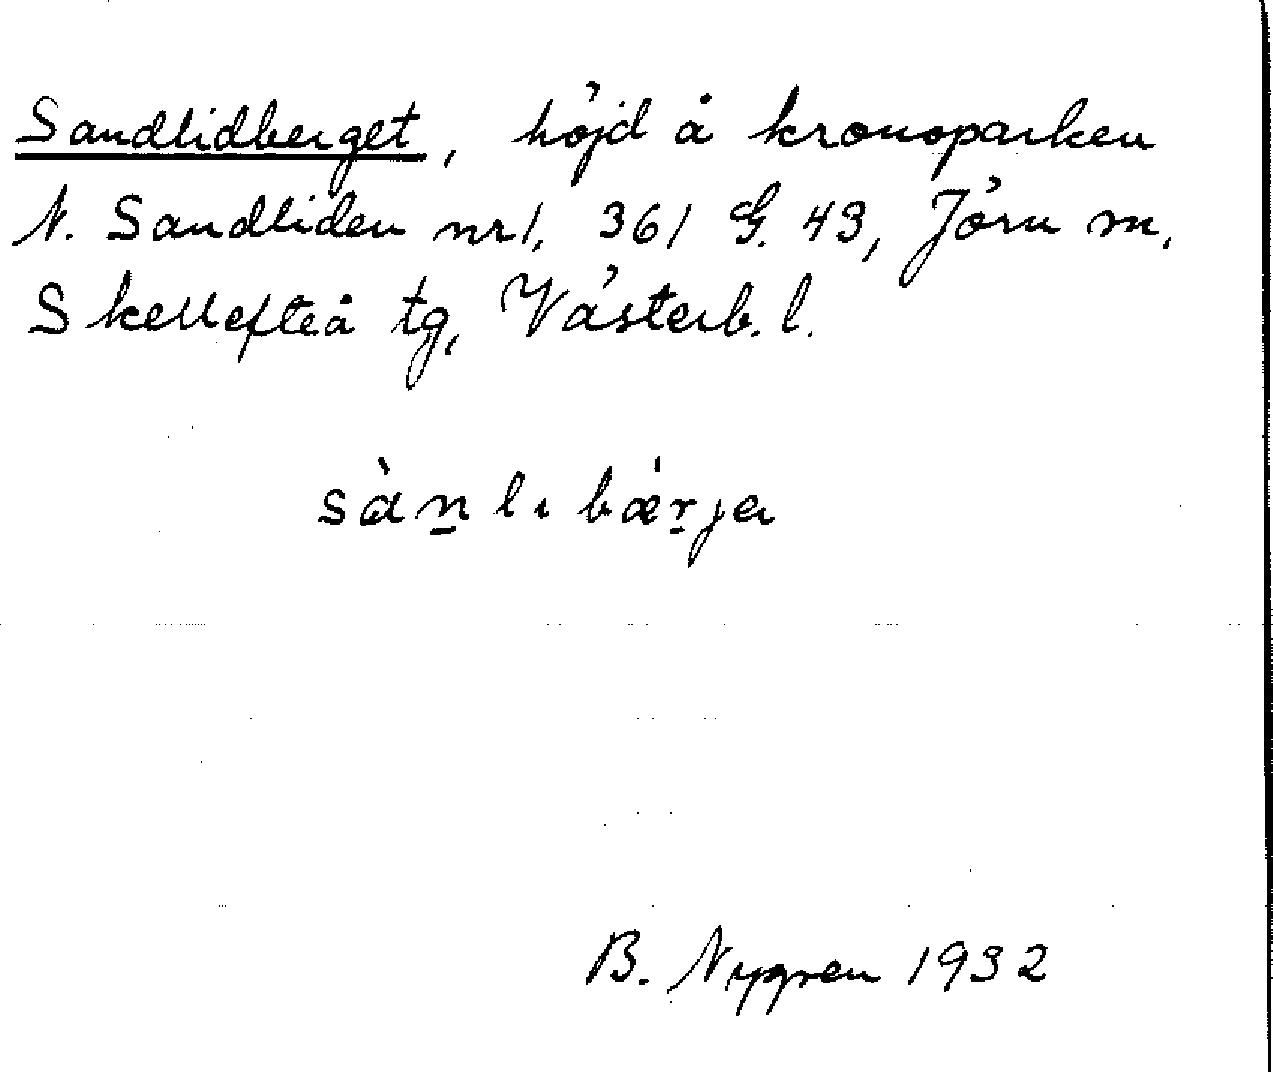 Sandlidberget, höjd å kronoparken
N. Sandliden nr1, 361 G. 43, Jörn m,
Skellefteå tg, Västerb. l.
sàn̠lıbǽr̠ja
B. Nygren 1932